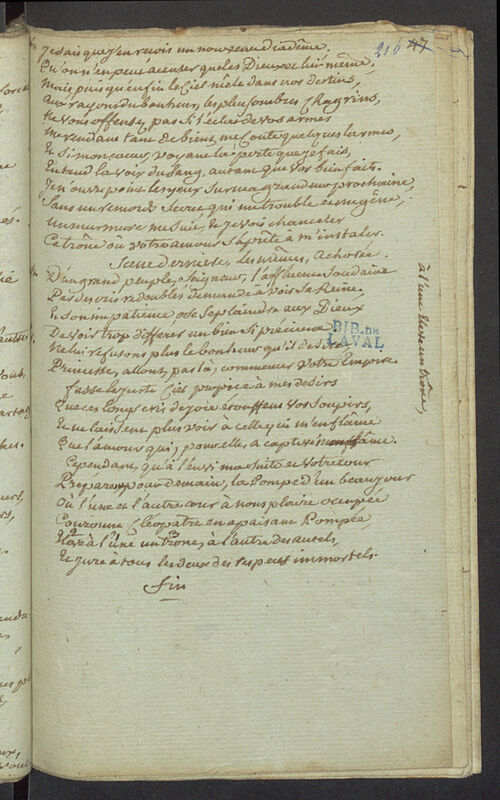 216 47
Je sais que j'en reçois un nouveau diadême,
Qu'on n'en peut accuser que les Dieux et lui même,
Mais puis qu'enfin le Ciel mêle dans nos destins,
aux rayons du bonheur, les plus sombres chagrins,
Ne vous offensés pas si l'éclat de vos armes
me rendant tant de biens, me coute quelques larmes,
Et si mon coeur, voyant la perte que je fais,
Entend la voix du sang, autant que vos bienfaits.
J'en ouvre point les yeux sur ma grandeur prochaine,
Sans un remords secret qui me trouble et me gêne,
un murmure me suit, et je vois chanceler
Ce trône où votre amour s'aprête à m'instaler.
Scene derniere, les mêmes, achorée
D'un grand peuple, Seigneur, l'affluence soudaine
Par des cris redoublés demande à voir sa Reine.
Et son impatience ose se plaindre aux Dieux
De voir trop differer un bien si précieux
Ne lui refusons plus le bonheur qu'il desire
Princesse, allons, par là, commencer votre Empire
fasse le juste Ciel propice à mes desirs
Que ces longs cris de joie étouffent vos soupirs,
Et ne laissent plus voir à celle qui m'enflâme
Que l'amour qui, pour elle, a captivé mon âme.
Cependant, qu'à l'envi ma suite et votre cour
Préparent pour demain, la pompe d'un beau jour
Où l'une et l'autre cour à nous plaire occupée
Couronne Cleopatre en apaisant Pompée,
à l'une un trône, à l'autre des autels,
Et jure à tous les deux des respects immortels.
fin
à l'une un trône,
BIB. DE
LAVAL